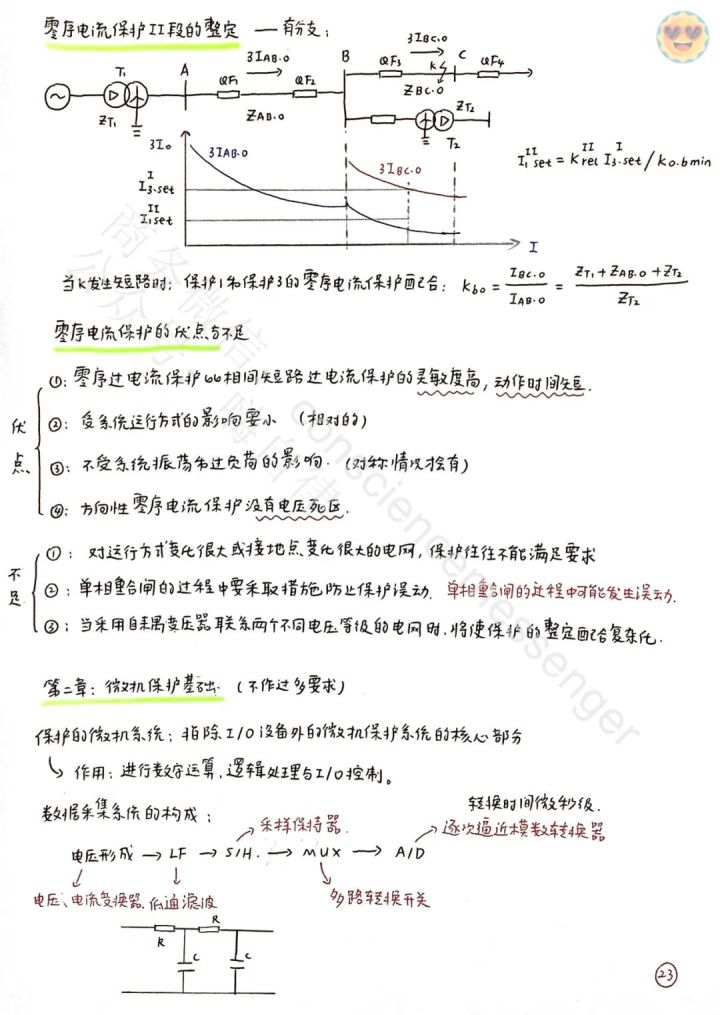 零序电流保护II段的整定 —有分支:
3I_AB.0
3I_BC.0
T₁ A QF₁ QF₂ B QF₃ K C QF₄
Z_T₁ Z_AB.0 Z_BC.0
Z_T₂
T₂
3I₀ 3I_AB.0 3I_BC.0
I₃.set^I
I₁set^II
I
I₁set^II = K_rel^II I₃.set^I / K₀.bmin
当K发生短路时: 保护1和保护3的零序电流保护配合: K_b0 = I_BC.0 / I_AB.0 = (Z_T₁ + Z_AB.0 + Z_T₂) / Z_T₂
零序电流保护的优点与不足
优点
①: 零序过电流保护比相间短路过电流保护的灵敏度高, 动作时间短.
②: 受系统运行方式的影响要小 (相对的)
③: 不受系统振荡和过负荷的影响. (对称情况皆有)
④: 方向性零序电流保护没有电压死区.
不足
①: 对运行方式变化很大或接地点变化很大的电网, 保护往往不能满足要求
②: 单相重合闸的过程中要采取措施, 防止保护误动. 单相重合闸的过程中可能发生误动.
③: 当采用自耦变压器联系两个不同电压等级的电网时, 将使保护的整定配合复杂化.
第二章: 微机保护基础. (不作过多要求)
保护的微机系统: 指除I/O设备外的微机保护系统的核心部分
↳ 作用: 进行数字运算, 逻辑处理与I/O控制。
数据采集系统的构成:
采样保持器.
转换时间微秒级.
逐次逼近模数转换器
电压形成 → LF → S/H. → MUX → A/D
电压、电流变换器. 低通滤波
多路转换开关
R R
C C
23
consciencemessenger